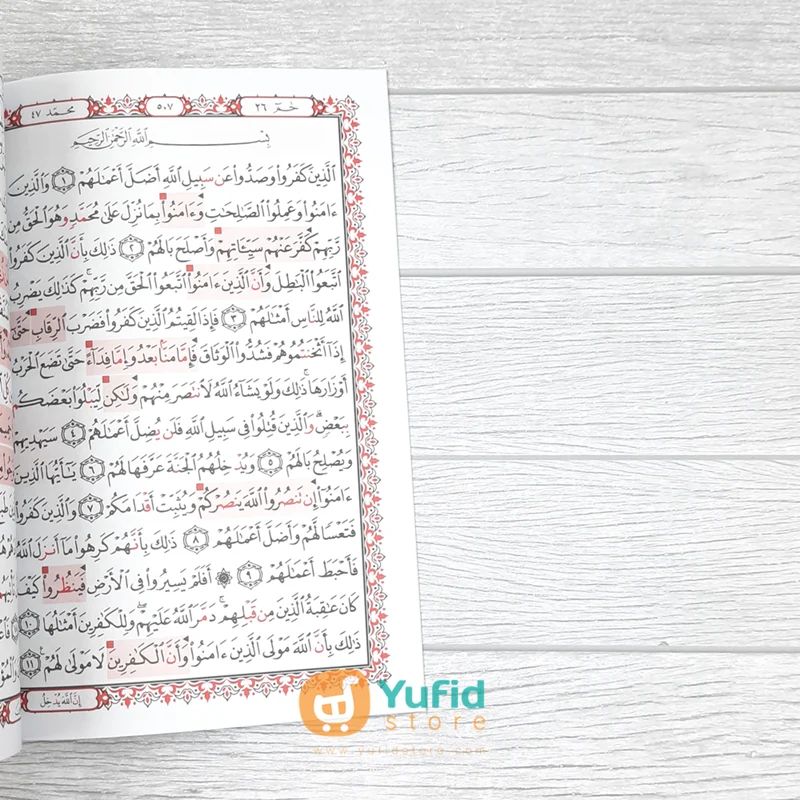 حم ٢٦
٥٠٧
محمد ٤٧
بِسْمِ ٱللَّهِ ٱلرَّحْمَٰنِ ٱلرَّحِيمِ
ٱلَّذِينَ كَفَرُوا۟ وَصَدُّوا۟ عَن سَبِيلِ ٱللَّهِ أَضَلَّ أَعْمَٰلَهُمْ ١ وَٱلَّذِينَ
ءَامَنُوا۟ وَعَمِلُوا۟ ٱلصَّٰلِحَٰتِ وَءَامَنُوا۟ بِمَا نُزِّلَ عَلَىٰ مُحَمَّدٍ وَهُوَ ٱلْحَقُّ مِن
رَّبِّهِمْ كَفَّرَ عَنْهُمْ سَيِّـَٔاتِهِمْ وَأَصْلَحَ بَالَهُمْ ٢ ذَٰلِكَ بِأَنَّ ٱلَّذِينَ كَفَرُوا۟
ٱتَّبَعُوا۟ ٱلْبَٰطِلَ وَأَنَّ ٱلَّذِينَ ءَامَنُوا۟ ٱتَّبَعُوا۟ ٱلْحَقَّ مِن رَّبِّهِمْ ۚ كَذَٰلِكَ يَضْرِبُ
ٱللَّهُ لِلنَّاسِ أَمْثَٰلَهُمْ ٣ فَإِذَا لَقِيتُمُ ٱلَّذِينَ كَفَرُوا۟ فَضَرْبَ ٱلرِّقَابِ حَتَّىٰ
إِذَآ أَثْخَنتُمُوهُمْ فَشُدُّوا۟ ٱلْوَثَاقَ فَإِمَّا مَنًّۢا بَعْدُ وَإِمَّا فِدَآءً حَتَّىٰ تَضَعَ ٱلْحَرْبُ
أَوْزَارَهَا ۚ ذَٰلِكَ وَلَوْ يَشَآءُ ٱللَّهُ لَٱنتَصَرَ مِنْهُمْ وَلَٰكِن لِّيَبْلُوَا۟ بَعْضَكُم
بِبَعْضٍ ۗ وَٱلَّذِينَ قُتِلُوا۟ فِى سَبِيلِ ٱللَّهِ فَلَن يُضِلَّ أَعْمَٰلَهُمْ ٤ سَيَهْدِيهِمْ
وَيُصْلِحُ بَالَهُمْ ٥ وَيُدْخِلُهُمُ ٱلْجَنَّةَ عَرَّفَهَا لَهُمْ ٦ يَٰٓأَيُّهَا ٱلَّذِينَ
ءَامَنُوٓا۟ إِن تَنصُرُوا۟ ٱللَّهَ يَنصُرْكُمْ وَيُثَبِّتْ أَقْدَامَكُمْ ٧ وَٱلَّذِينَ كَفَرُوا۟
فَتَعْسًا لَّهُمْ وَأَضَلَّ أَعْمَٰلَهُمْ ٨ ذَٰلِكَ بِأَنَّهُمْ كَرِهُوا۟ مَآ أَنزَلَ ٱللَّهُ
فَأَحْبَطَ أَعْمَٰلَهُمْ ٩ ۞ أَفَلَمْ يَسِيرُوا۟ فِى ٱلْأَرْضِ فَيَنظُرُوا۟ كَيْفَ
كَانَ عَٰقِبَةُ ٱلَّذِينَ مِن قَبْلِهِمْ ۚ دَمَّرَ ٱللَّهُ عَلَيْهِمْ ۖ وَلِلْكَٰفِرِينَ أَمْثَٰلُهَا ١٠
ذَٰلِكَ بِأَنَّ ٱللَّهَ مَوْلَى ٱلَّذِينَ ءَامَنُوا۟ وَأَنَّ ٱلْكَٰفِرِينَ لَا مَوْلَىٰ لَهُمْ ١١
إِنَّ ٱللَّهَ يُدْخِلُ
Yufid
store
www.yufidstore.com